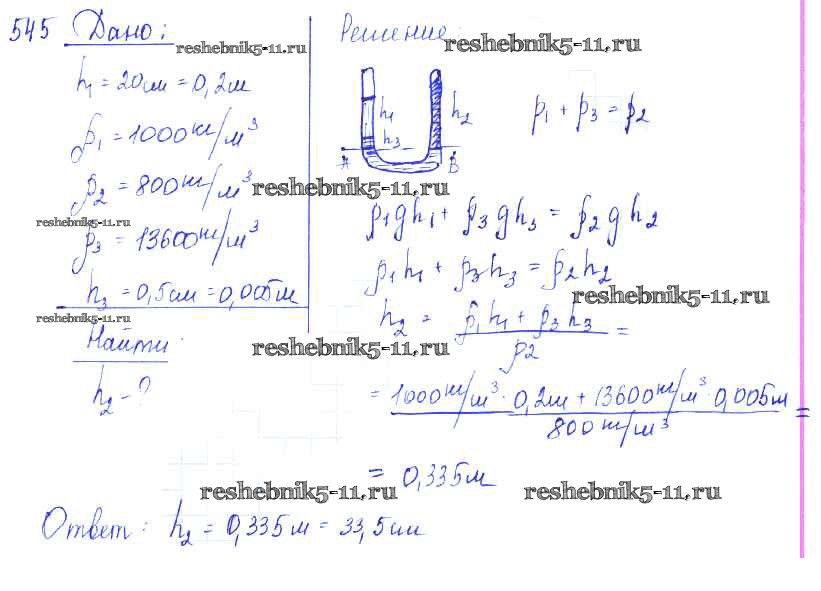 545 Дано:
reshebnik5-11.ru
h₁ = 20см = 0,2м
ρ₁ = 1000 кг/м³
ρ₂ = 800 кг/м³
reshebnik5-11.ru
reshebnik5-11.ru
ρ₃ = 13600 кг/м³
h₃ = 0,5см = 0,005м
reshebnik5-11.ru
Найти:
reshebnik5-11.ru
h₂ - ?
Решение:
reshebnik5-11.ru
h₁
h₂
h₃
A
B
p₁ + p₃ = p₂
ρ₁gh₁ + ρ₃gh₃ = ρ₂gh₂
ρ₁h₁ + ρ₃h₃ = ρ₂h₂
reshebnik5-11.ru
h₂ = ρ₁h₁ + ρ₃h₃ =
ρ₂
= 1000 кг/м³ · 0,2м + 13600 кг/м³ · 0,005м =
800 кг/м³
= 0,335м
reshebnik5-11.ru
reshebnik5-11.ru
Ответ: h₂ = 0,335м = 33,5см